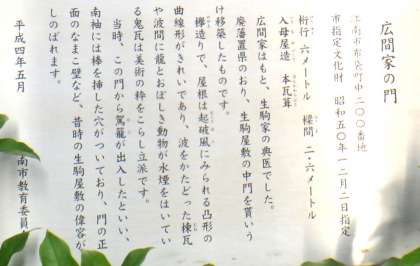 広間家の門
江南市布袋町中二〇〇番地
市指定文化財　昭和五〇年一二月二日指定
桁行　六メートル　梁間　二・六メートル
入母屋造　本瓦葺
広間家はもと、生駒家の典医でした。
廃藩置県のおり、生駒屋敷の中門を貰いう
け移築したものです。
欅造りで、屋根は起破風にみられる凸形の
曲線形がきれいであり、波をかたどった棟瓦
や波間に龍とおぼしき動物が水煙をはいてい
る鬼瓦は美術の粋をこらし立派です。
当時、この門から駕籠が出入したといい、
南袖には棒を挿した穴がついており、門の正
面のなまこ壁など、昔時の生駒屋敷の偉容が
しのばれます。
平成四年五月
南市教育委員